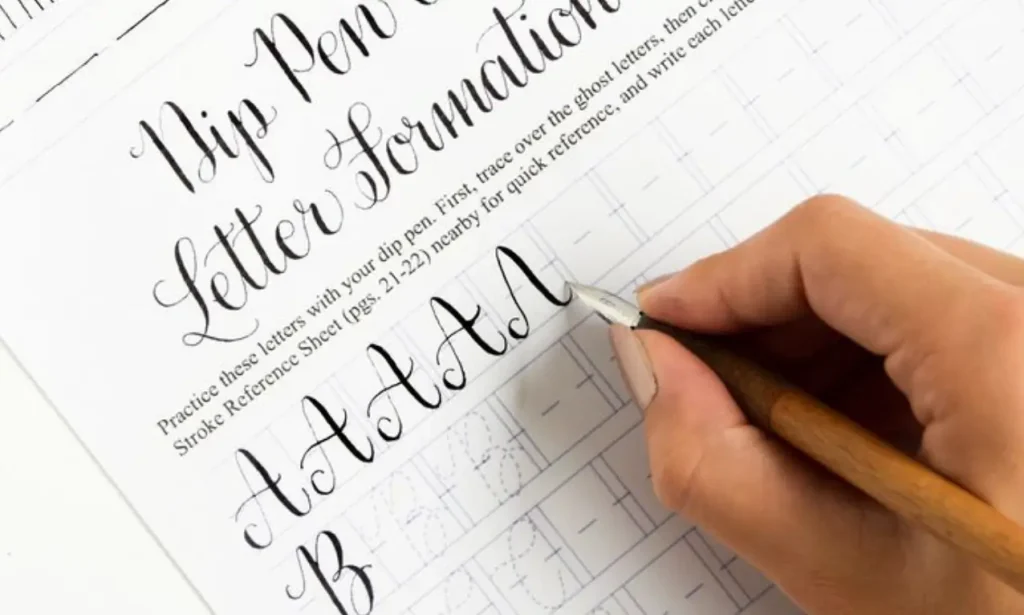 Dip Pen
Letter Formation
Practice these letters with your dip pen. First, trace over the ghost letters, then
Stroke Reference Sheet (pgs. 21-22) nearby for quick reference, and write each
A A A A A
B